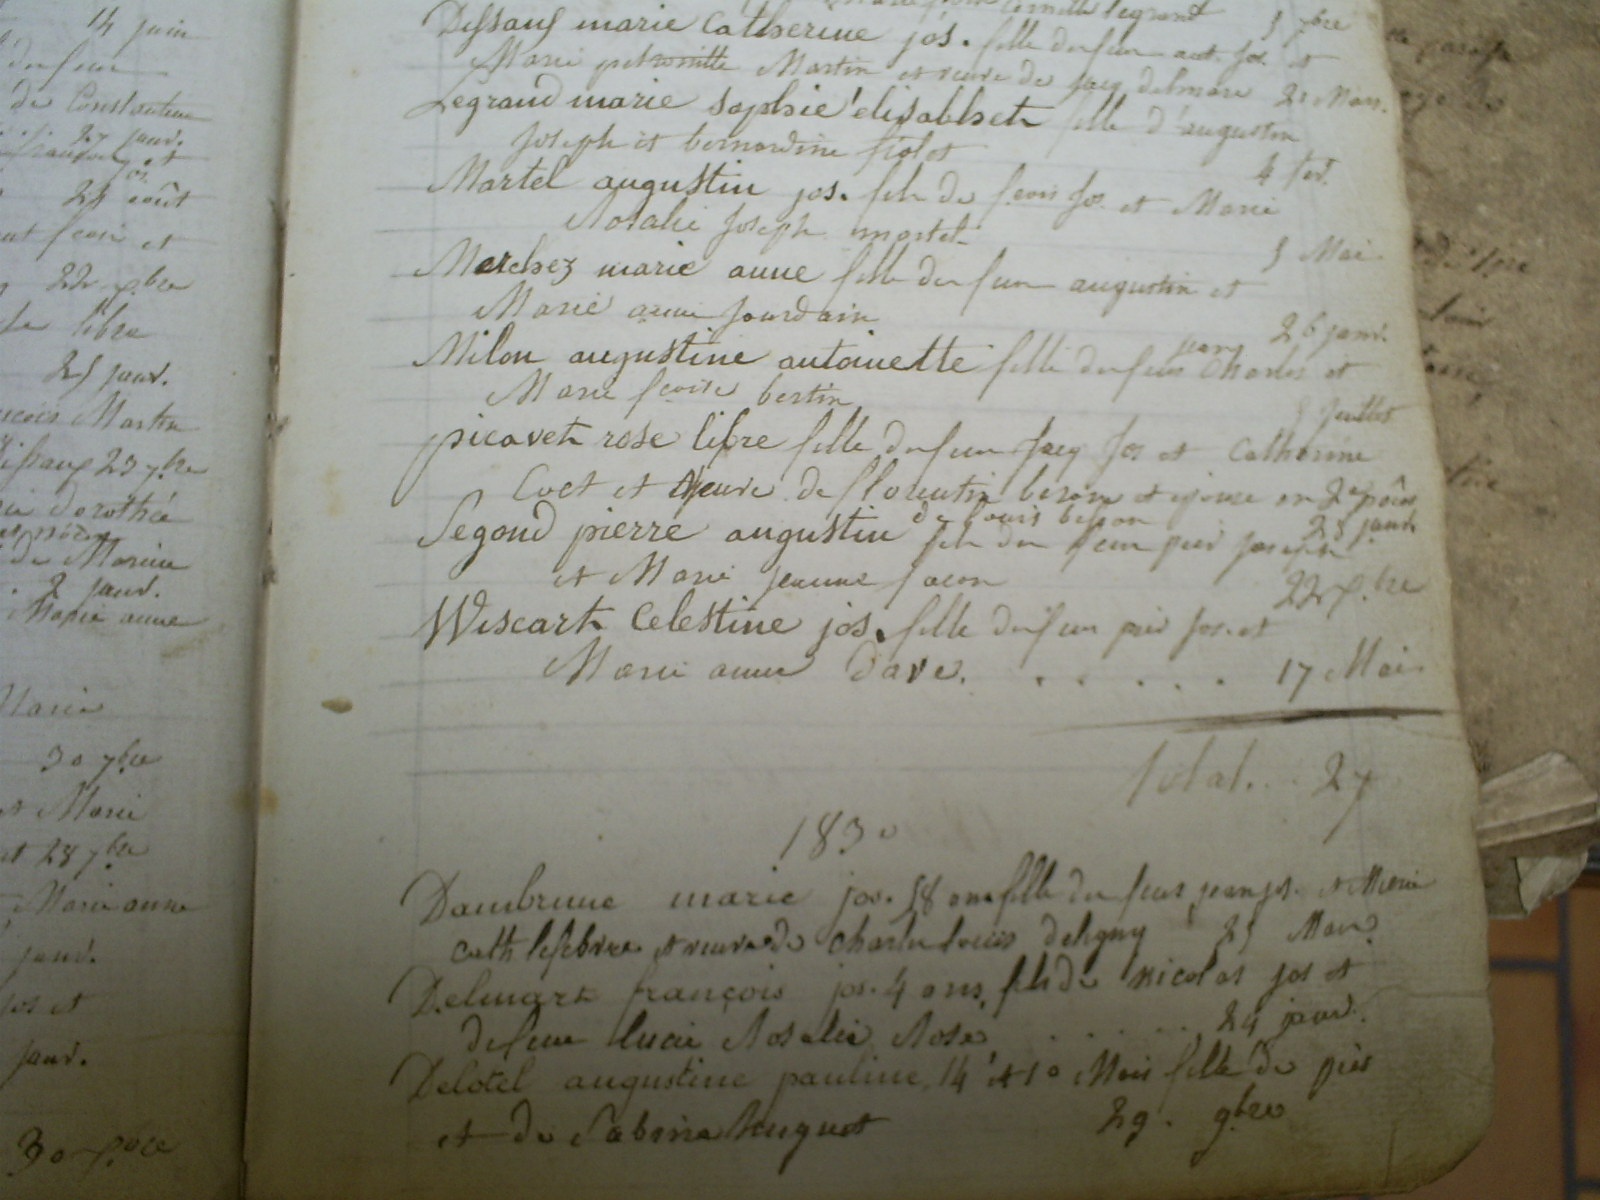 14 juin
de Constantin
27 janv.
24 août
22 xbre
libre
25 janv.
Martin
23 7bre
dorothée
de Marie
2 janv.
Marie anne
Marie
30 7bre
et Marie
et 28 7bre
Marie anne
janv.
jos et
janv.
30 xbre
legrand 5 7bre
Dissaux marie Catherine jos. fille de feu ant. jos. et
Marie petronille Martin et veuve de jacq delmare 21 Mars.
Legrand marie sophie élisabheth fille d'augustin
Joseph et bernardine fiolet 4 fev.
Martel augustin jos. fils de fcois jos. et Marie
Rosalie Joseph martel 5 Mai
Merchez marie anne fille de feu augustin et
Marie anne Jourdain 26 janv.
Milon augustine antoinette fille de feu jean Charles et
Marie fcoise bertin 5 Juillet
picaveth rose libre fille de feu Jacq Jos et Catherine
Coet et veuve de florentin beson et epouse en 2e
de Louis besson 25 janv.
Segond pierre augustin fils de feu pier joseph
et Marie jeanne facon 22 xbre
Wiscart Celestine jos. fille de feu pier jos. et
Marie anne Dave. . . . . . 17 Mai
total. . 27
1830
Dambrune marie jos. 58 ans fille de feu jean jos. et Marie
cath lefebvre et veuve de charles louis deligny 25 Mars.
Delmart françois jos. 4 ans, fils de nicolas jos et
de feue lucie Rosalie Rose . . . . 24 janv.
Delotel augustine pauline, 14 et 10 Mois fille de pier
et de Sabine huguet 29. 9bre